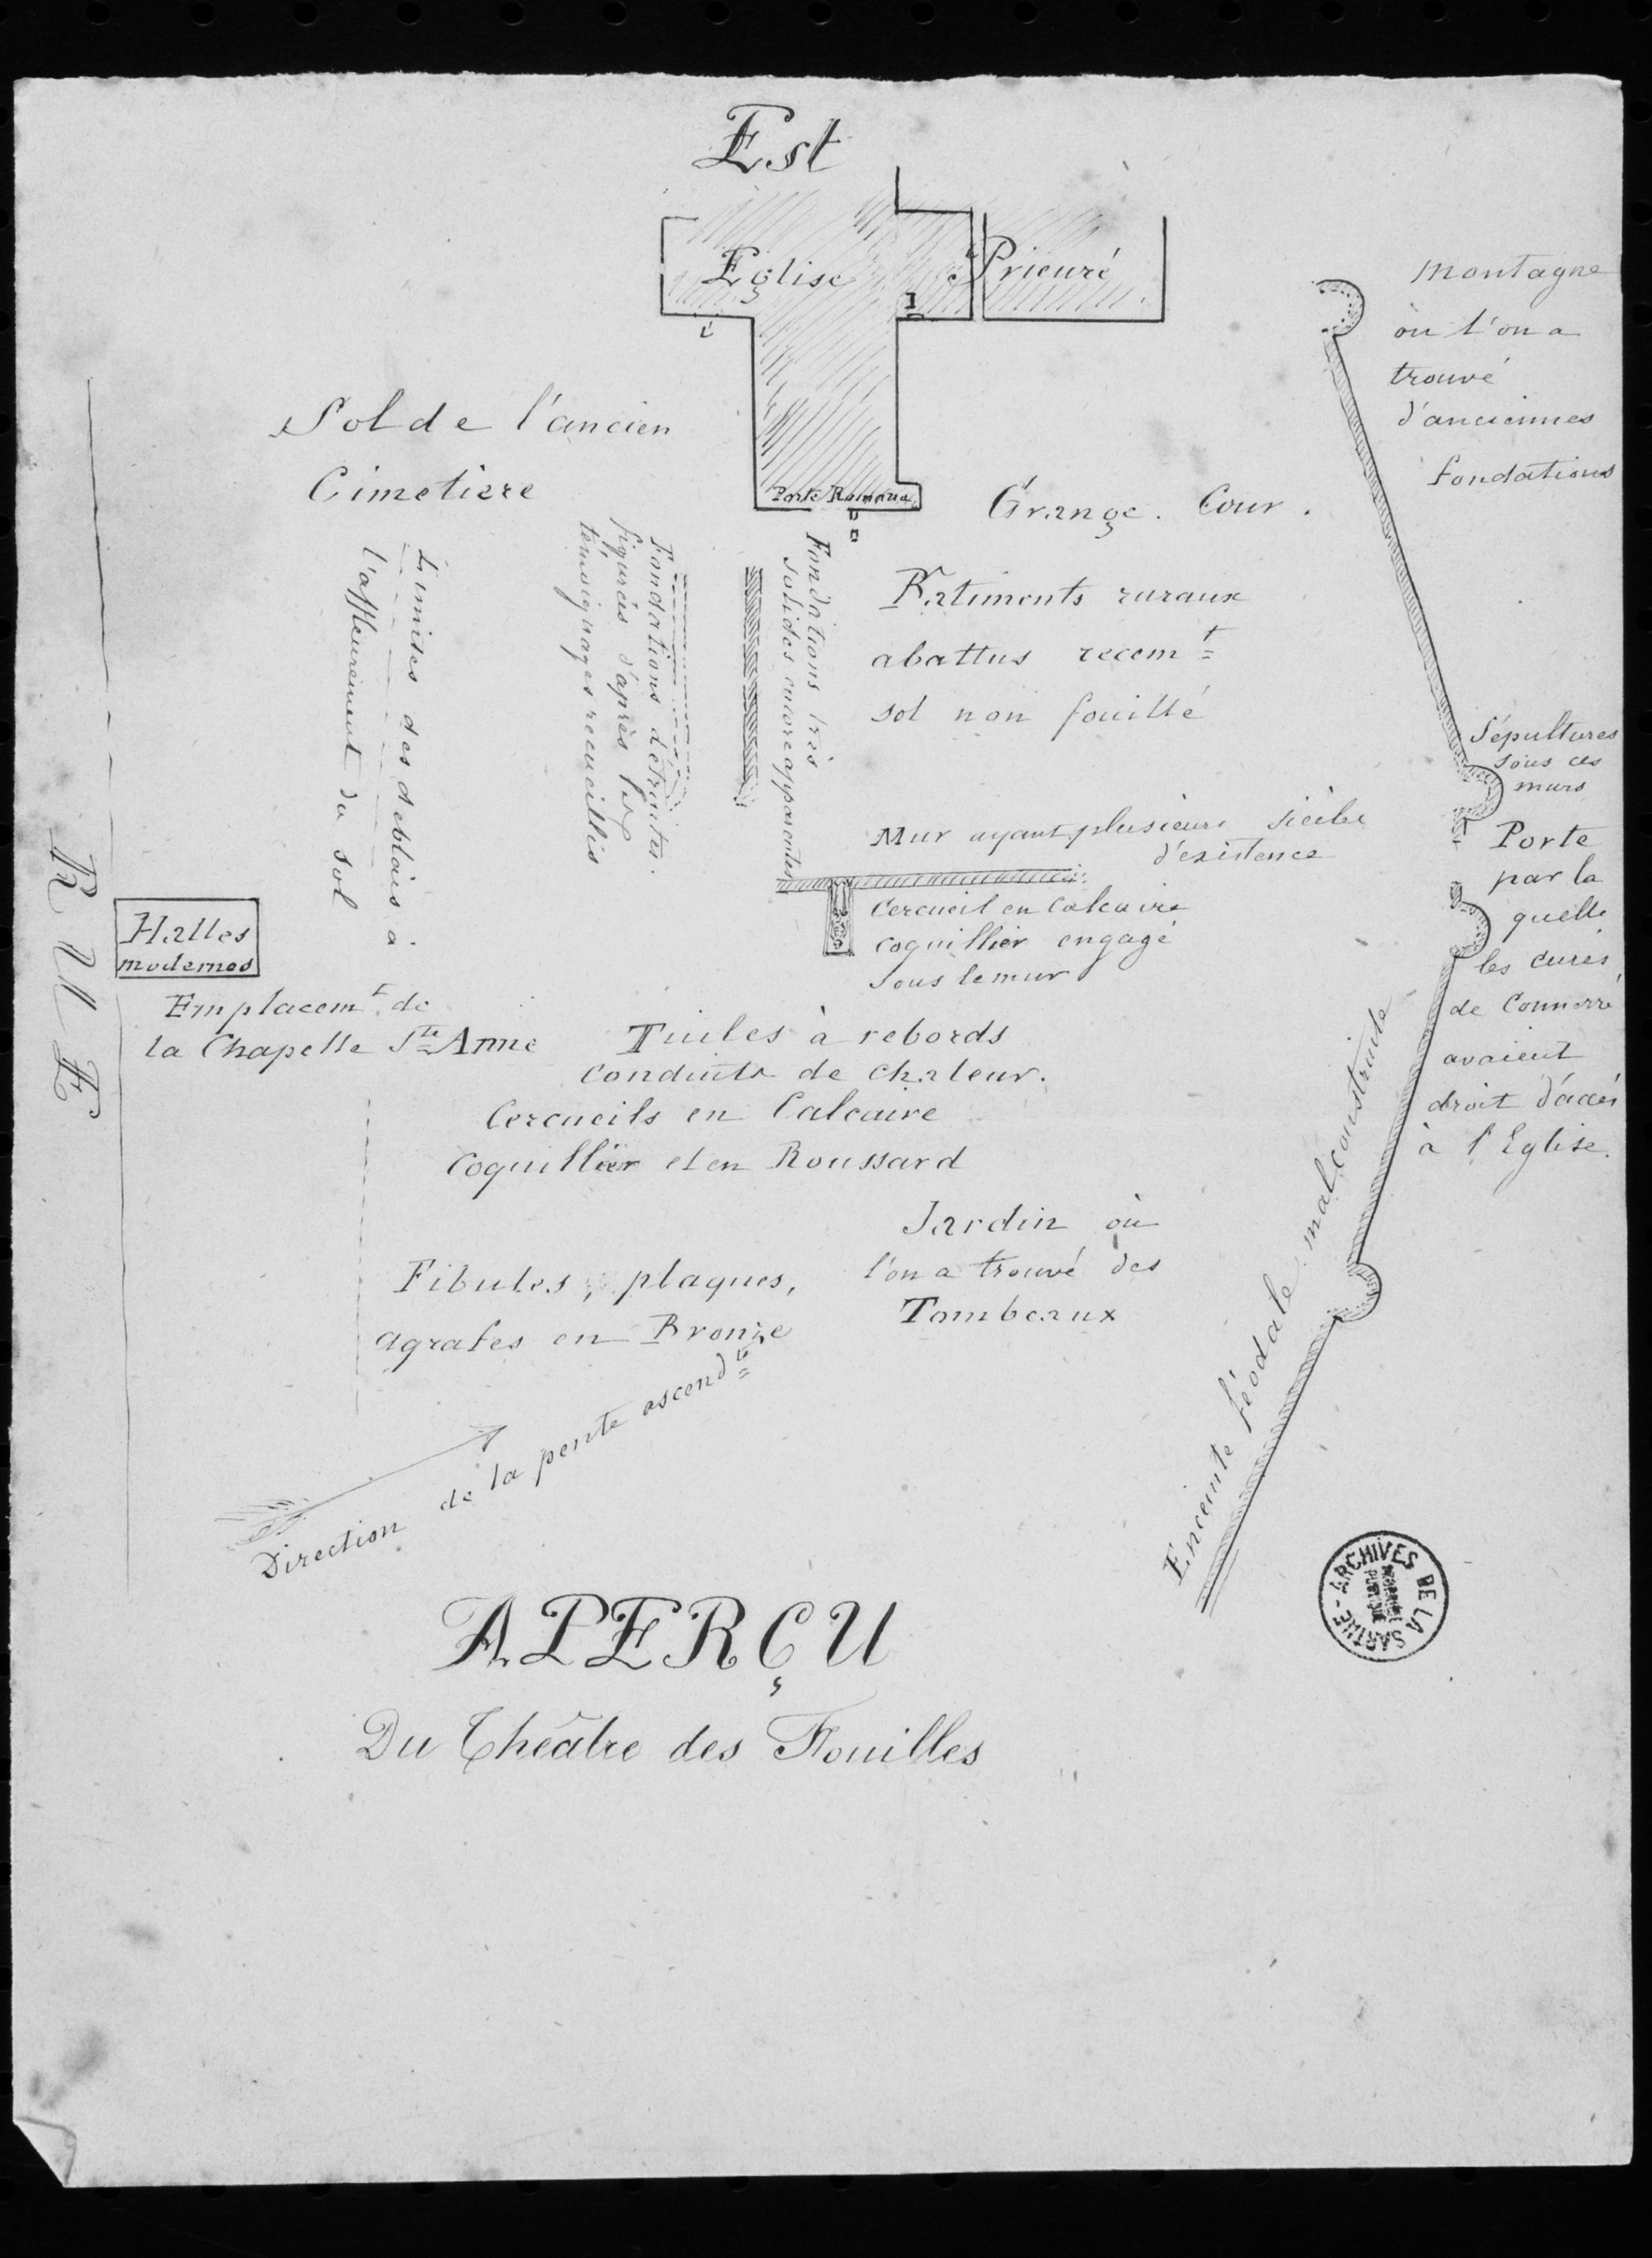 Est
Eglise
Prieuré
Montagne
où l'on a
trouvé
d'anciennes
fondations
Sol de l'ancien
Cimetière
Porte Romane
Grange. Cour.
Limites des deblais à
l'affleurement du sol
Fondations détruites.
figurées d'après les
témoignages recueillis
Fondations très
solides encore apparentes
Bâtiments ruraux
abattus recemt
sol non fouillé
Sépultures
sous ces
murs
Mur ayant plusieurs siècles
d'existence
Porte
par la
quelle
les curés
de Connerré
avaient
droit d'accès
à l'Eglise.
Cercueil en Calcaire
coquillier engagé
sous le mur
RUE
Halles
modernes
Emplacemt de
la Chapelle Ste Anne
Tuiles à rebords
conduits de chaleur.
Cercueils en Calcaire
coquillier et en Roussard
Jardin où
l'on a trouvé des
Tombeaux
Fibules, plaques,
agrafes en Bronze
Direction de la pente ascendte
Enceinte féodale mal construite
APERÇU
Du Théâtre des Fouilles
ARCHIVES DE LA SARTHE